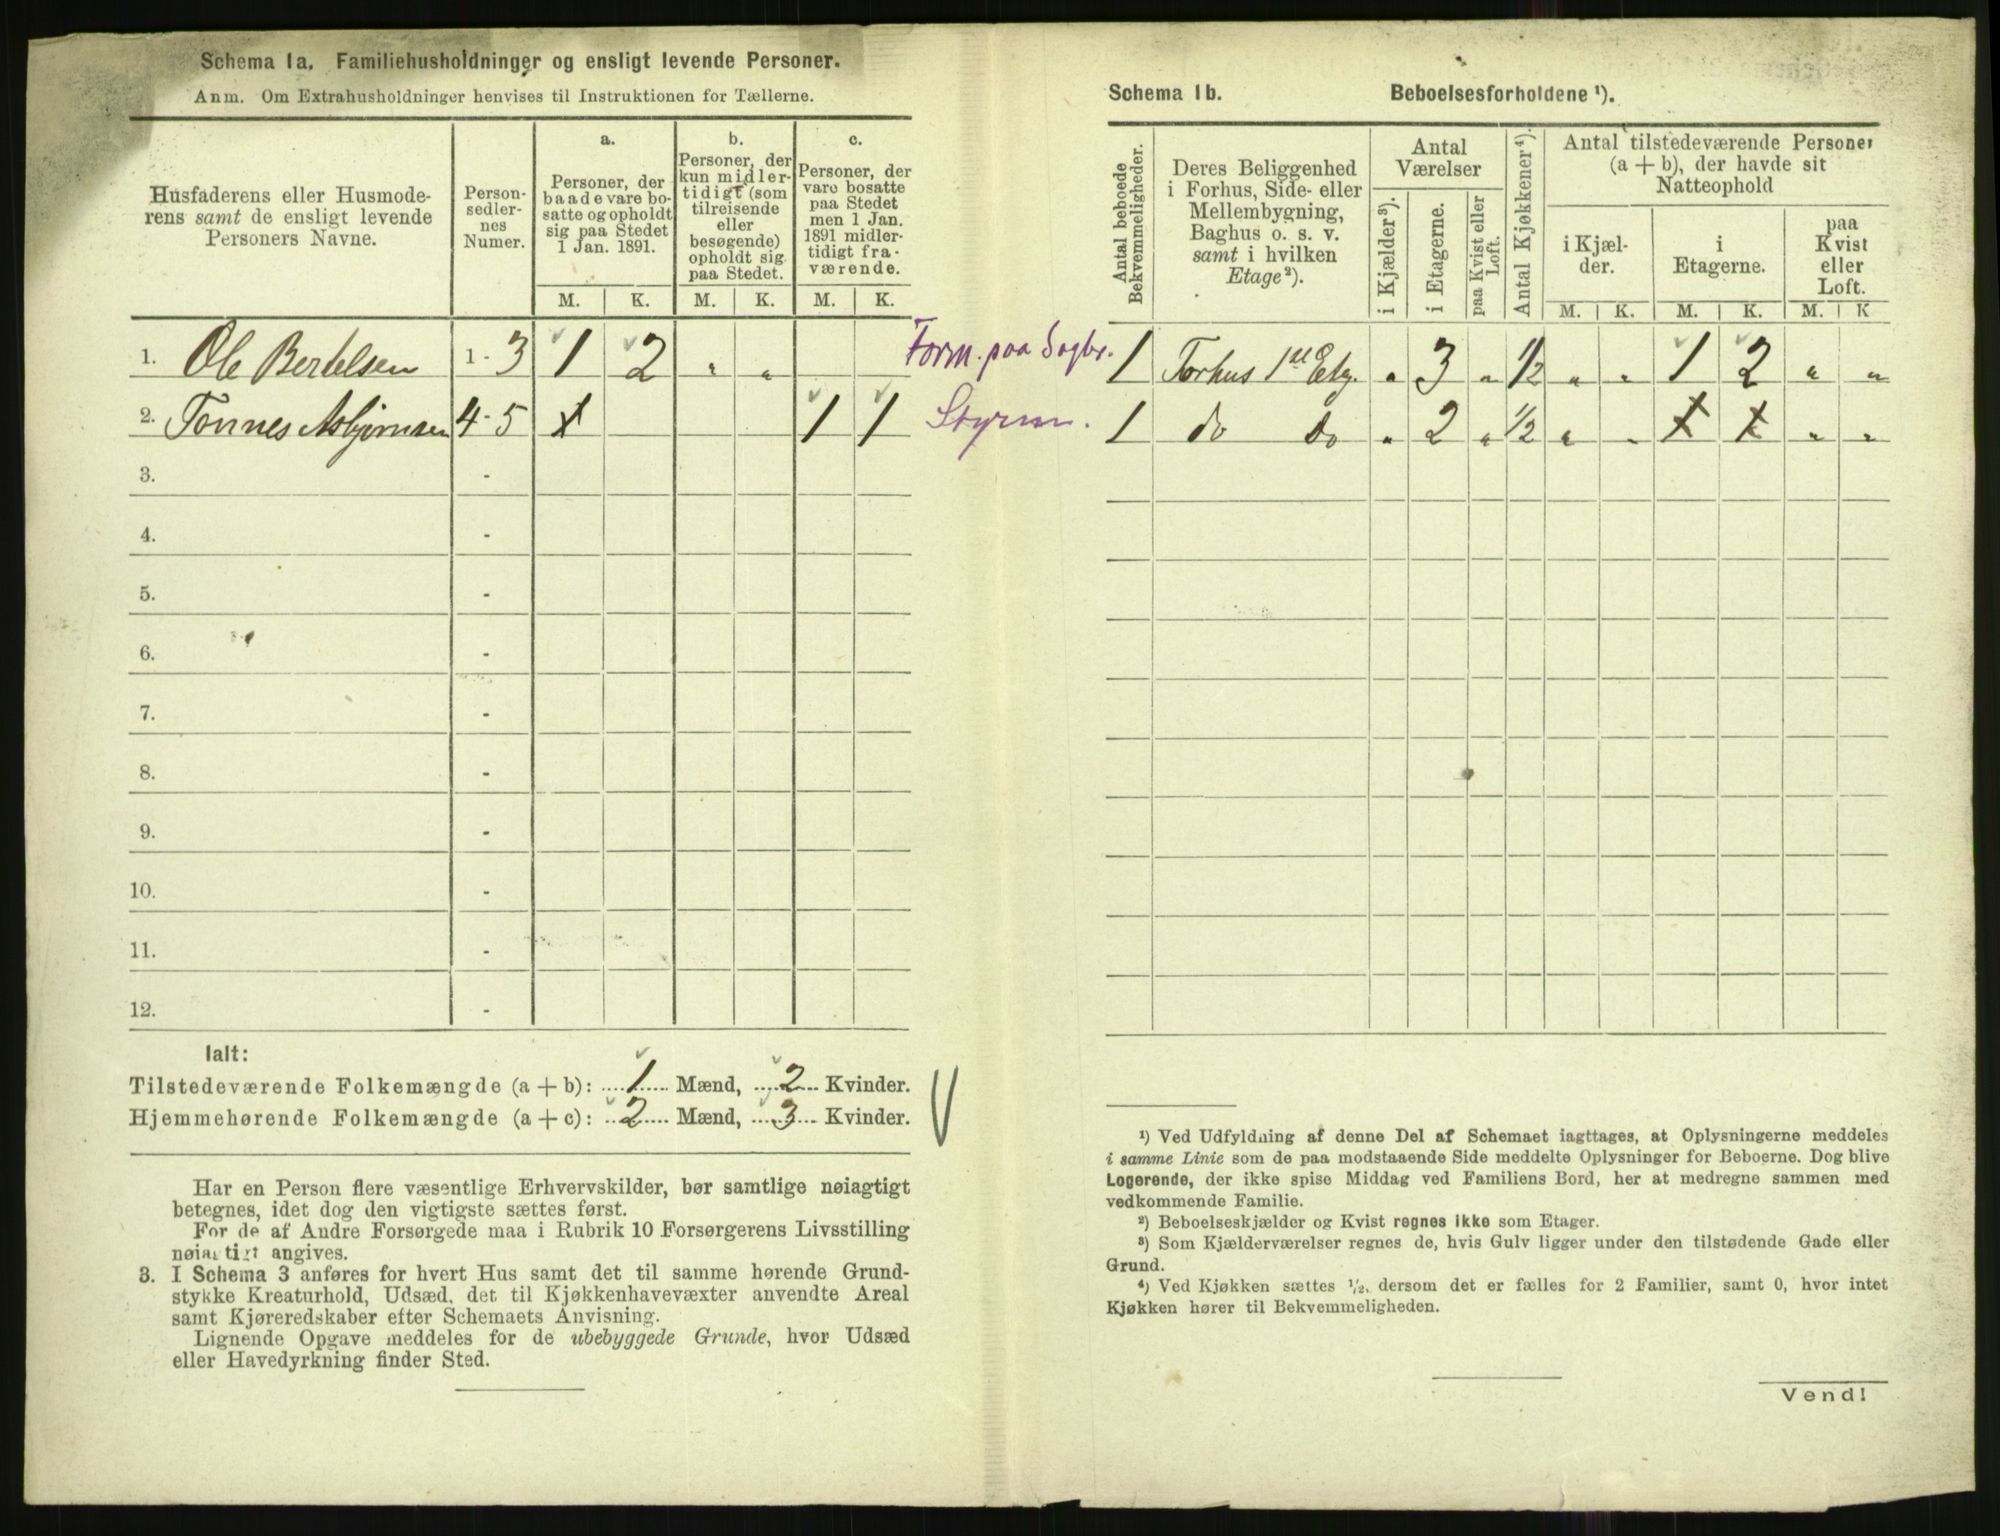 Schema 1a. Familiehusholdninger og ensligt levende Personer.
Anm. Om Extrahusholdninger henvises til Instruktionen for Tællerne.
Husfaderens eller Husmode-
rens samt de ensligt levende
Personers Navne.
Person-
sedler-
nes
Numer.
a.
Personer, der
baade vare bo-
satte og opholdt
sig paa Stedet
1 Jan. 1891.
b.
Personer, der
kun midler-
tidigt (som
tilreisende
eller
besøgende)
opholdt sig
paa Stedet.
c.
Personer, der
vare bosatte
paa Stedet
men 1 Jan.
1891 midler-
tidigt fra-
værende.
M. K. M. K. M. K.
1. Ole Bertelsen 1 - 3 1 2 " " Form. paa Sagbr.
2. Tønnes Asbjørnsen 4 - 5 x 1 1 Styrm.
3. -
4. -
5. -
6. -
7. -
8. -
9. -
10. -
11. -
12. -
Ialt:
Tilstedeværende Folkemængde (a + b): 1 Mænd, 2 Kvinder.
Hjemmehørende Folkemængde (a + c): 2 Mænd, 3 Kvinder.
Har en Person flere væsentlige Erhvervskilder, bør samtlige nøiagtigt
betegnes, idet dog den vigtigste sættes først.
For de af Andre Forsørgede maa i Rubrik 10 Forsørgerens Livsstilling
nøiagtigt angives.
3. I Schema 3 anføres for hvert Hus samt det til samme hørende Grund-
stykke Kreaturhold, Udsæd, det til Kjøkkenhavevæxter anvendte Areal
samt Kjøreredskaber efter Schemaets Anvisning.
Lignende Opgave meddeles for de ubebyggede Grunde, hvor Udsæd
eller Havedyrkning finder Sted.
Schema 1b. Beboelsesforholdene ¹).
Antal beboede
Bekvemmeligheder.
Deres Beliggenhed
i Forhus, Side- eller
Mellembygning,
Baghus o. s. v.
samt i hvilken
Etage²).
Antal
Værelser
i Kjælder³).
i Etagerne.
paa Kvist eller
Loft.
Antal Kjøkkener⁴).
Antal tilstedeværende Personer
(a + b), der havde sit
Natteophold
i Kjæl-
der.
i
Etagerne.
paa
Kvist
eller
Loft.
M. K. M. K. M. K
1 Forhus 1ste Etg. " 3 " 1/2 " " 1 2 " "
1 do do " 2 " 1/2 " " x x " "
¹) Ved Udfyldning af denne Del af Schemaet iagttages, at Oplysningerne meddeles
i samme Linie som de paa modstaaende Side meddelte Oplysninger for Beboerne. Dog blive
Logerende, der ikke spise Middag ved Familiens Bord, her at medregne sammen med
vedkommende Familie.
²) Beboelseskjælder og Kvist regnes ikke som Etager.
³) Som Kjælderværelser regnes de, hvis Gulv ligger under den tilstødende Gade eller
Grund.
⁴) Ved Kjøkken sættes ½, dersom det er fælles for 2 Familier, samt 0, hvor intet
Kjøkken hører til Bekvemmeligheden.
Vend!